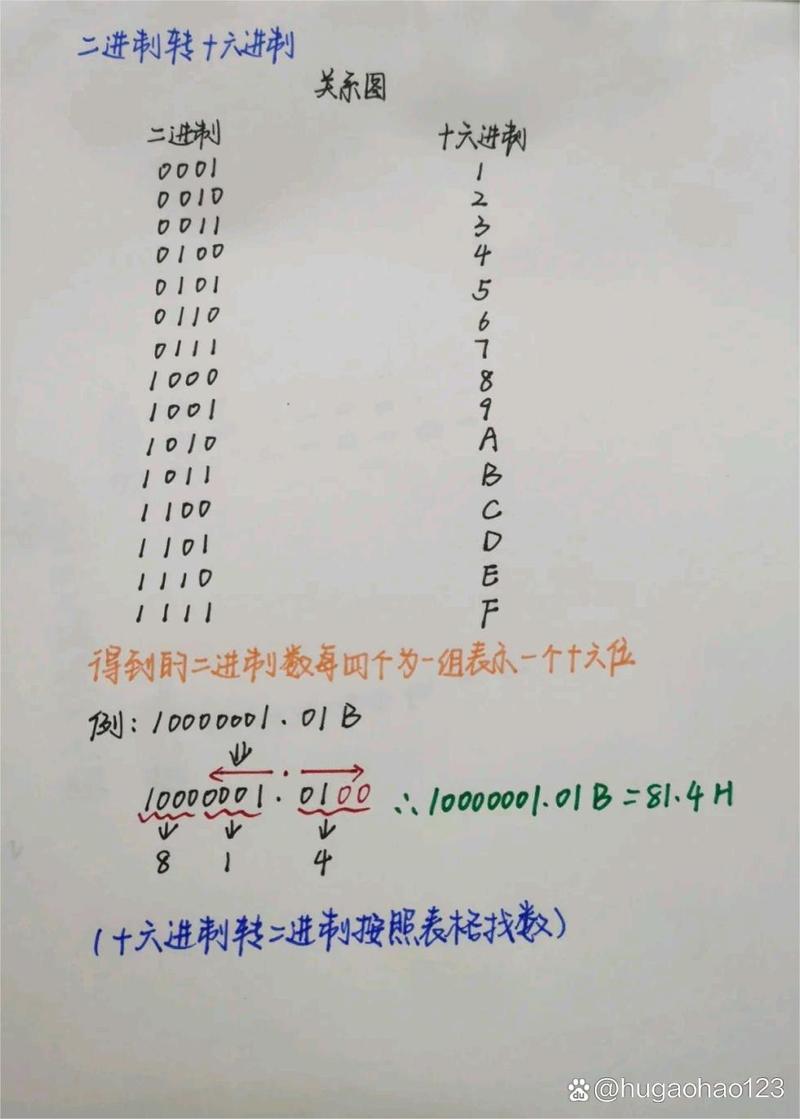 二进制转十六进制
关系图
二进制 十六进制
0001 1
0010 2
0011 3
0100 4
0101 5
0110 6
0111 7
1000 8
1001 9
1010 A
1011 B
1100 C
1101 D
1110 E
1111 F
得到的二进制数每四个为一组表示一个十六位
例:10000001.01B
10000001.0100 ∴10000001.01B=81.4H
8 1 4
(十六进制转二进制按照表格找数)
@hugaohao123